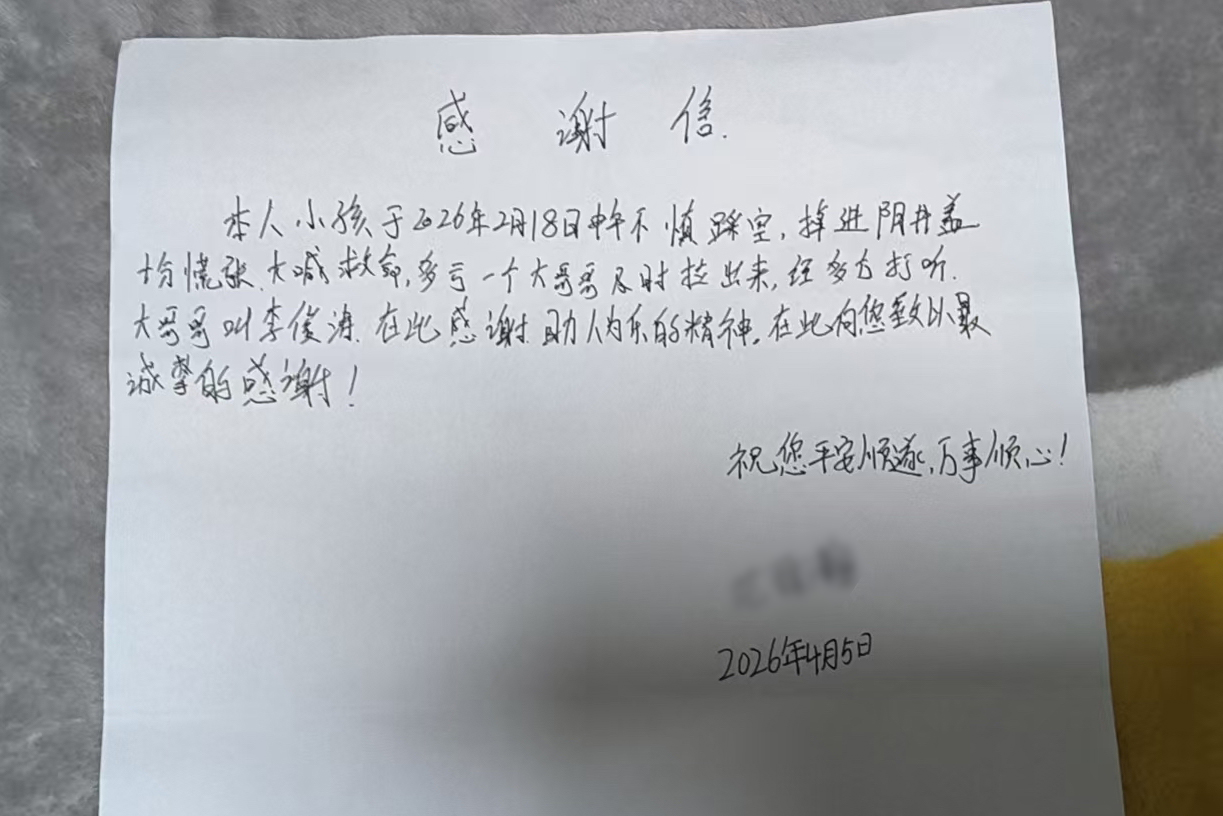 感谢信.
本人小孩于2026年2月18日中午不慎踩空,掉进阴井盖
十分慌张.大喊救命,多亏一个大哥哥及时拉出来,经多方打听.
大哥哥叫李俊涛.在此感谢助人为乐的精神,在此向您致以最
诚挚的感谢!
祝您平安顺遂,万事顺心!
2026年4月5日